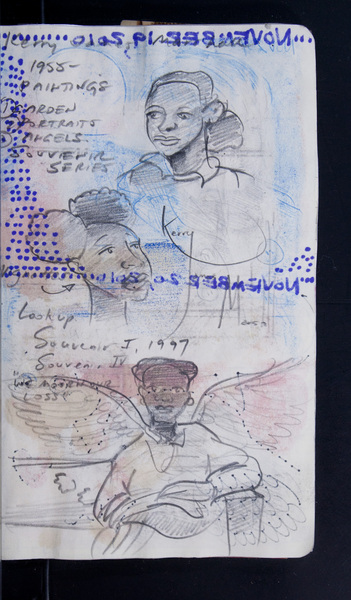 Kerry
NOVEMBER 19, 2010
1955-
PAINTINGS
GARDEN
PORTRAITS
ANGELS
SOUVENIR
SERIES
Kerry
NOVEMBER 20, 2010
Lookup
Souvenir I, 1997
Souvenir IV
"WE MOURN OUR
LOSS"